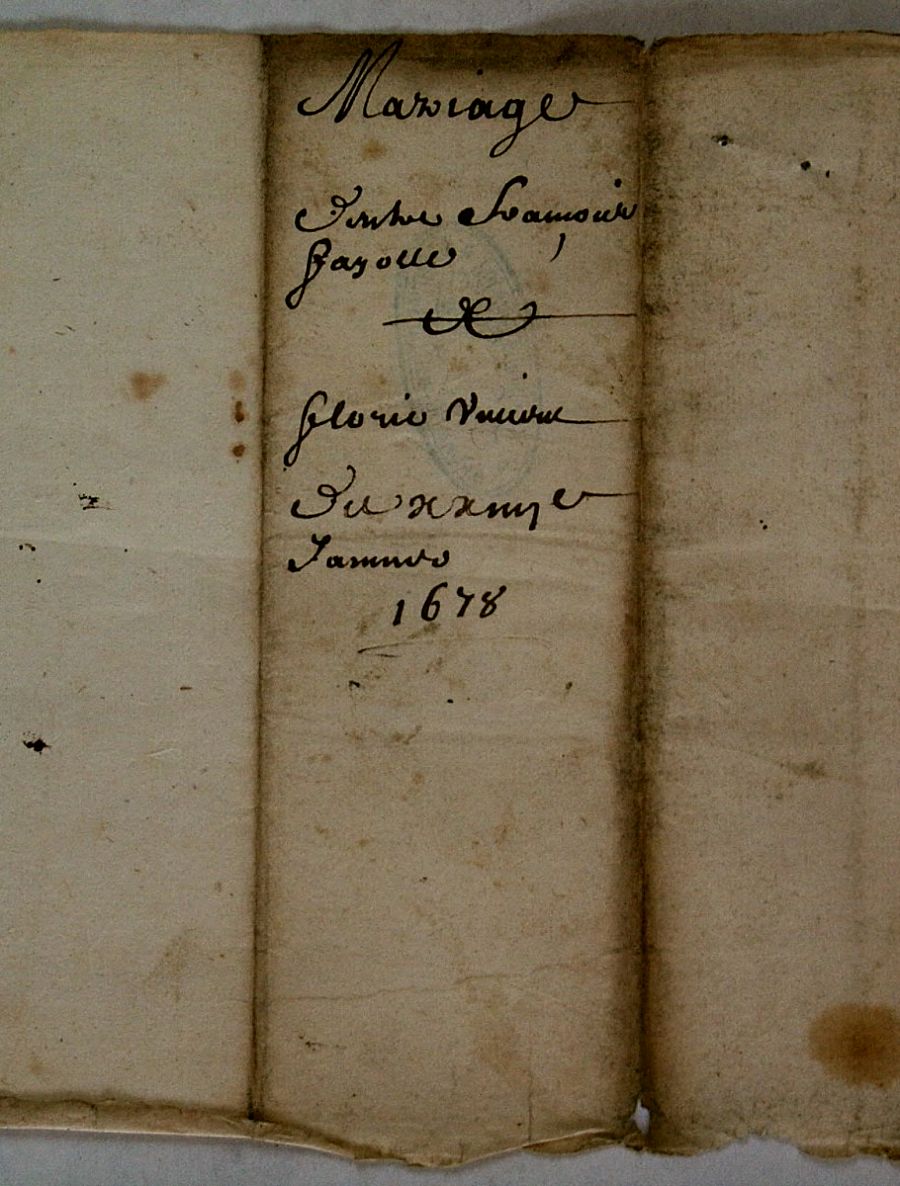 Mariage
Entre françois
fayolle
&
florie Vincent
Du xxiiije
Janvier
1678